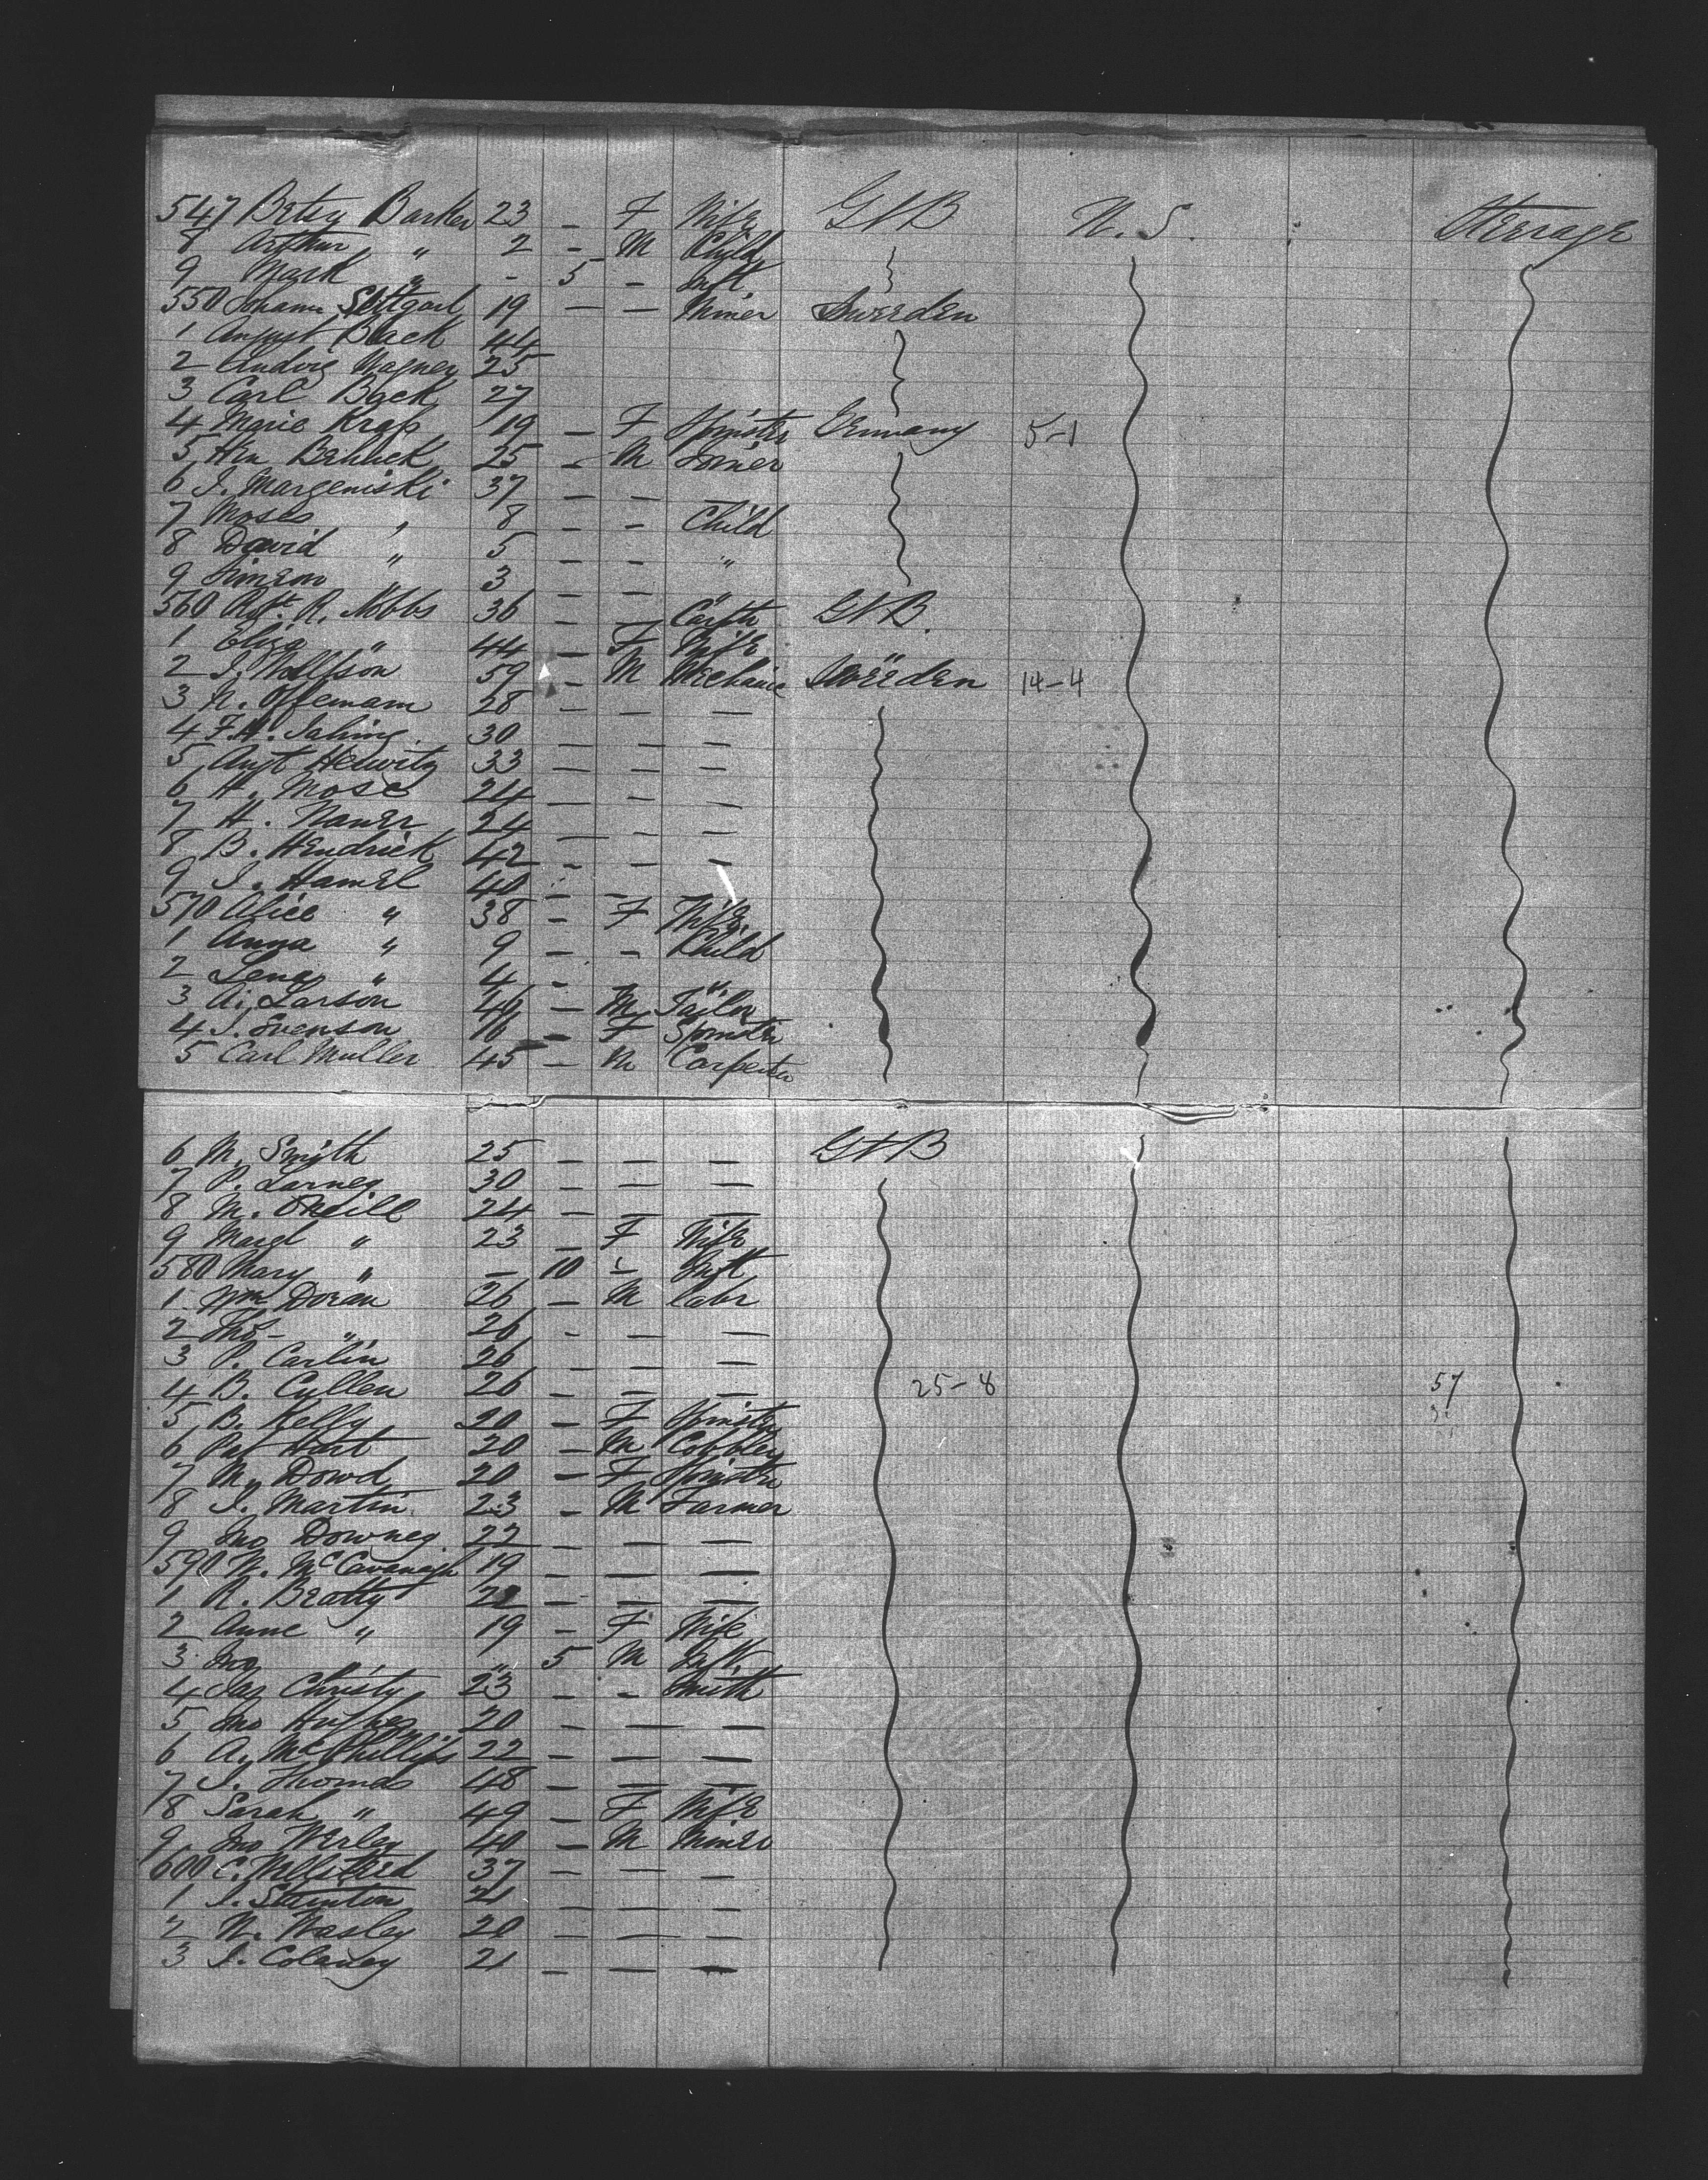 547 Betsy Barker 23 — F Wife Gt B U. S. Steerage
8 Arthur " 2 — M Child
9 Mark " - 5 — Inft
550 Johann 19 — — Miner Sweeden
1 August Back 44
2 Ludvig Wagner 25
3 Carl Back 27
4 Marie Krafs 19 — F Spinster Germany 5-1
5 Hrn 25 — M Joiner
6 J. Margeniski 37 — —
7 Moses " 8 — — Child
8 David " 5 — — "
9 Simeon " 3 — — "
560 Robt. R. Nobbs 36 — — Carptr Gt B.
1 Eliza " 44 — F Wife
2 J. Wolffson 59 — M Mechanic Sweeden 14-4
3 N. Offemam 28 — — —
4 F. W. Jahing 30 — — —
5 Augt Helwitz 33 — — —
6 H. Mose 24 — — —
7 H. Naner 24 — — —
8 B. Hendrick 42 — — —
9 J. Hamel 40 — —
570 Alice " 38 — F Wife
1 Anna " 9 — — Child
2 Lena " 4 — "
3 A. Larson 46 — M Tailor
4 J. Svenson 16 — F Spinster
5 Carl Muller 45 — M Carpenter
6 M. Smyth 25 — — — Gt B
7 P. Larney 30 — — —
8 M. ONeill 24 — — —
9 Margt " 23 — F Wife
580 Mary " — 10 — Inft
1 Wm Doran 26 — M Labr
2 Thos " 26 — — —
3 P. Carlin 26 — — —
4 B. Cullen 26 — — — 25-8 57
5 B. Kelly 20 — F Spinster
6 Pat Hart 20 — M Cobbler
7 M. Dowd 20 — F Spinster
8 J. Martin 23 — M Farmer
9 Jno Downey 22 — — —
590 N. McCavanagh 19 — — —
1 R. Beatty 22 — — —
2 Anne " 19 — F Wife
3 Jno " " 5 M Inft
4 Jas Christy 23 — — Smith
5 Jno Hughes 20 — — —
6 A. McPhillips 22 — — —
7 J. Thomas 48 — — —
8 Sarah " 49 — F Wife
9 Jno Werley 40 — M Miner
600 C. 37 — — —
1 J. Stainton 21 — — —
2 W. Wasley 20 — — —
3 J. Colaney 21 — — —